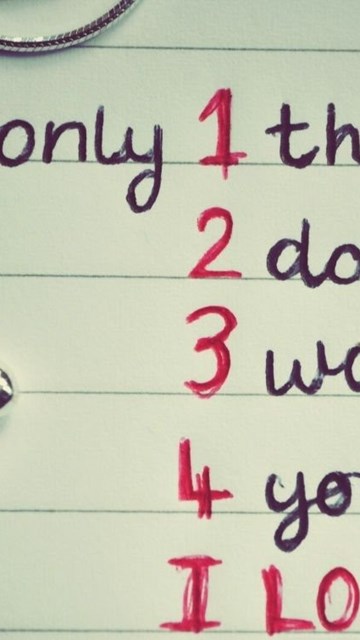 only 1 th
2 do
3 wo
4 yo
I LO